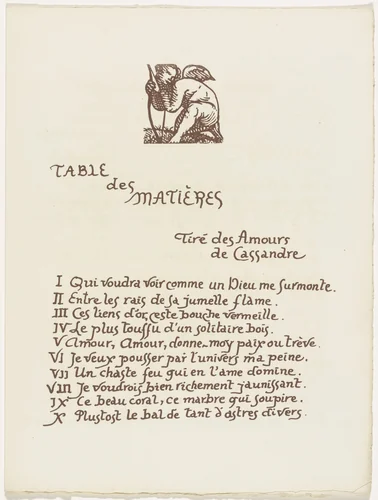 TABLE
des
MATIÈRES
Tiré des Amours
de Cassandre
I Qui voudra voir comme un Dieu me surmonte.
II Entre les rais de sa jumelle flame.
III Ces liens d'or, ceste bouche vermeille.
IV Le plus touffu d'un solitaire bois.
V Amour, Amour, donne-moy paix ou trève.
VI Je veux pousser par l'univers ma peine.
VII Un chaste feu qui en l'ame domine.
VIII Je voudrois bien richement jaunissant.
IX Ce beau coral, ce marbre qui soupire.
X Plustost le bal de tant d'astres divers.